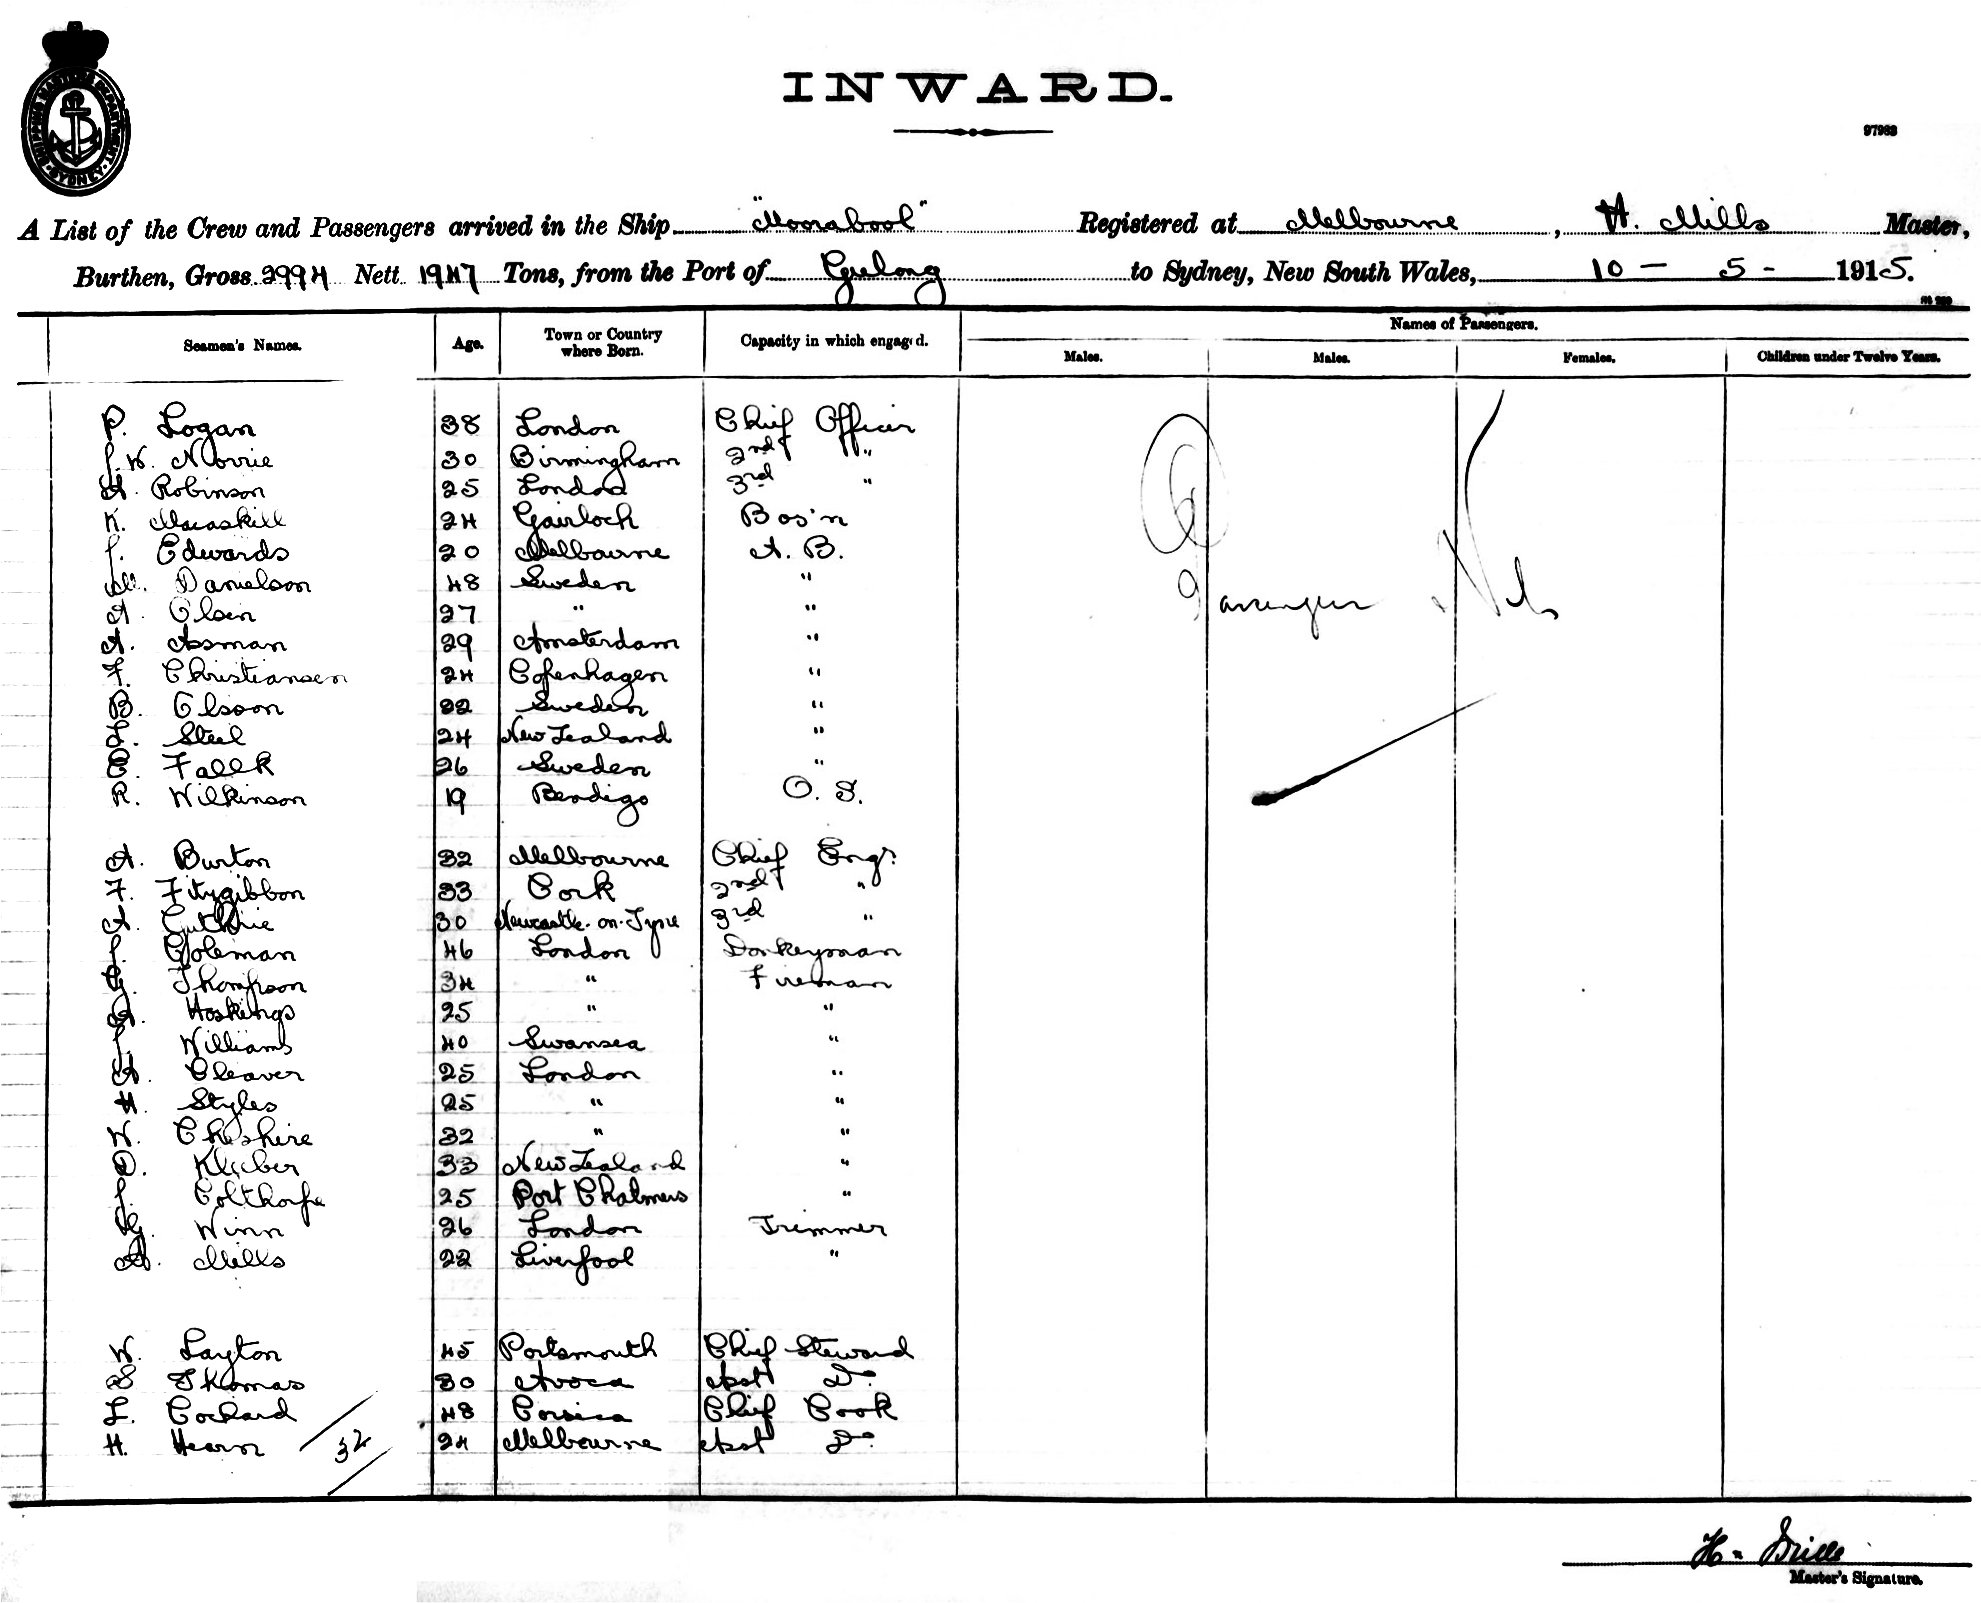 SHIPPING MASTER'S DEPARTMENT. SYDNEY
INWARD.
97963
A List of the Crew and Passengers arrived in the Ship "Moorabool" Registered at Melbourne, H. Mills Master,
Burthen, Gross 2994 Nett 1947 Tons, from the Port of Geelong to Sydney, New South Wales, 10 - 5 - 1915.
Seamen's Names. Age. Town or Country where Born. Capacity in which engaged. Names of Passengers.
Males. Males. Females. Children under Twelve Years.
P. Logan 38 London Chief Officer
J. W. Norrie 30 Birmingham 2nd "
A. Robinson 25 London 3rd "
K. Macaskill 24 Gairloch Bos'n
J. Edwards 20 Melbourne A. B.
M. Danielson 48 Sweden "
A. Olsen 27 " "
A. Assman 29 Amsterdam "
F. Christiansen 24 Copenhagen "
B. Olsson 22 Sweden "
L. Steel 24 New Zealand "
C. Fallk 26 Sweden "
R. Wilkinson 19 Bendigo O. S.
Passengers Nil
A. Burton 32 Melbourne Chief Engr
F. Fitzgibbon 33 Cork 2nd "
A. Guthrie 30 Newcastle-on-Tyne 3rd "
J. Coleman 46 London Donkeyman
G. Thompson 34 " Fireman
A. Hoskings 25 " "
J. Williams 40 Swansea "
A. Cleaver 25 London "
H. Styles 25 " "
W. Cheshire 32 " "
D. Kleiber 33 New Zealand "
J. Colthorpe 25 Port Chalmers "
G. Winn 26 London Trimmer
A. Mills 22 Liverpool "
W. Layton 45 Portsmouth Chief Steward
S Thomas 30 Avoca Asst Do
L. Cochard 48 Corsica Chief Cook
H. Hearn 24 Melbourne Asst Do
32
H. Mills
Master's Signature.